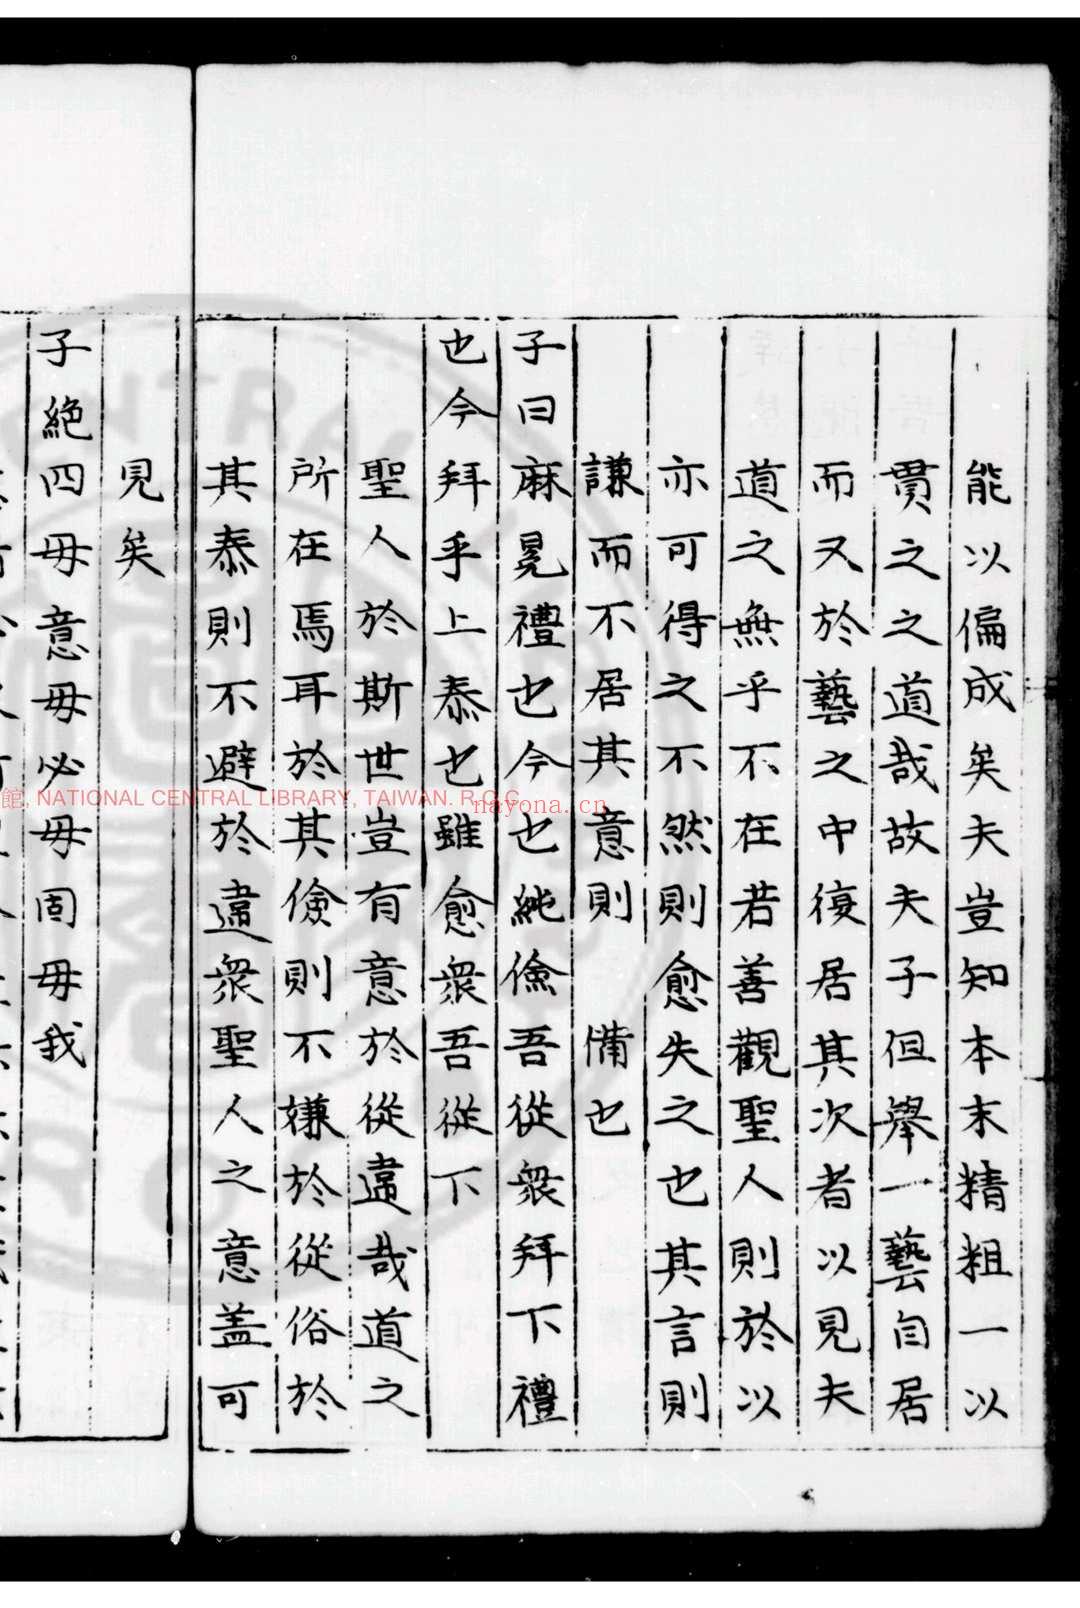 能以偏成矣夫豈知本末精粗一以
貫之之道哉故夫子但舉一藝自居
而又於藝之中復居其次者以見夫
道之無乎不在若善觀聖人則於以
亦可得之不然則愈失之也其言則
謙而不居其意則 備也
子曰麻冕禮也今也純儉吾從衆拜下禮
也今拜乎上泰也雖愈衆吾從下
聖人於斯世豈有意於從違哉道之
所在焉耳於其儉則不嫌於從俗於
其泰則不避於違衆聖人之意盖可
見矣
子絶四毋意毋必毋固毋我
館, NATIONAL CENTRAL LIBRARY, TAIWAN. R.O.C
nayona.cn